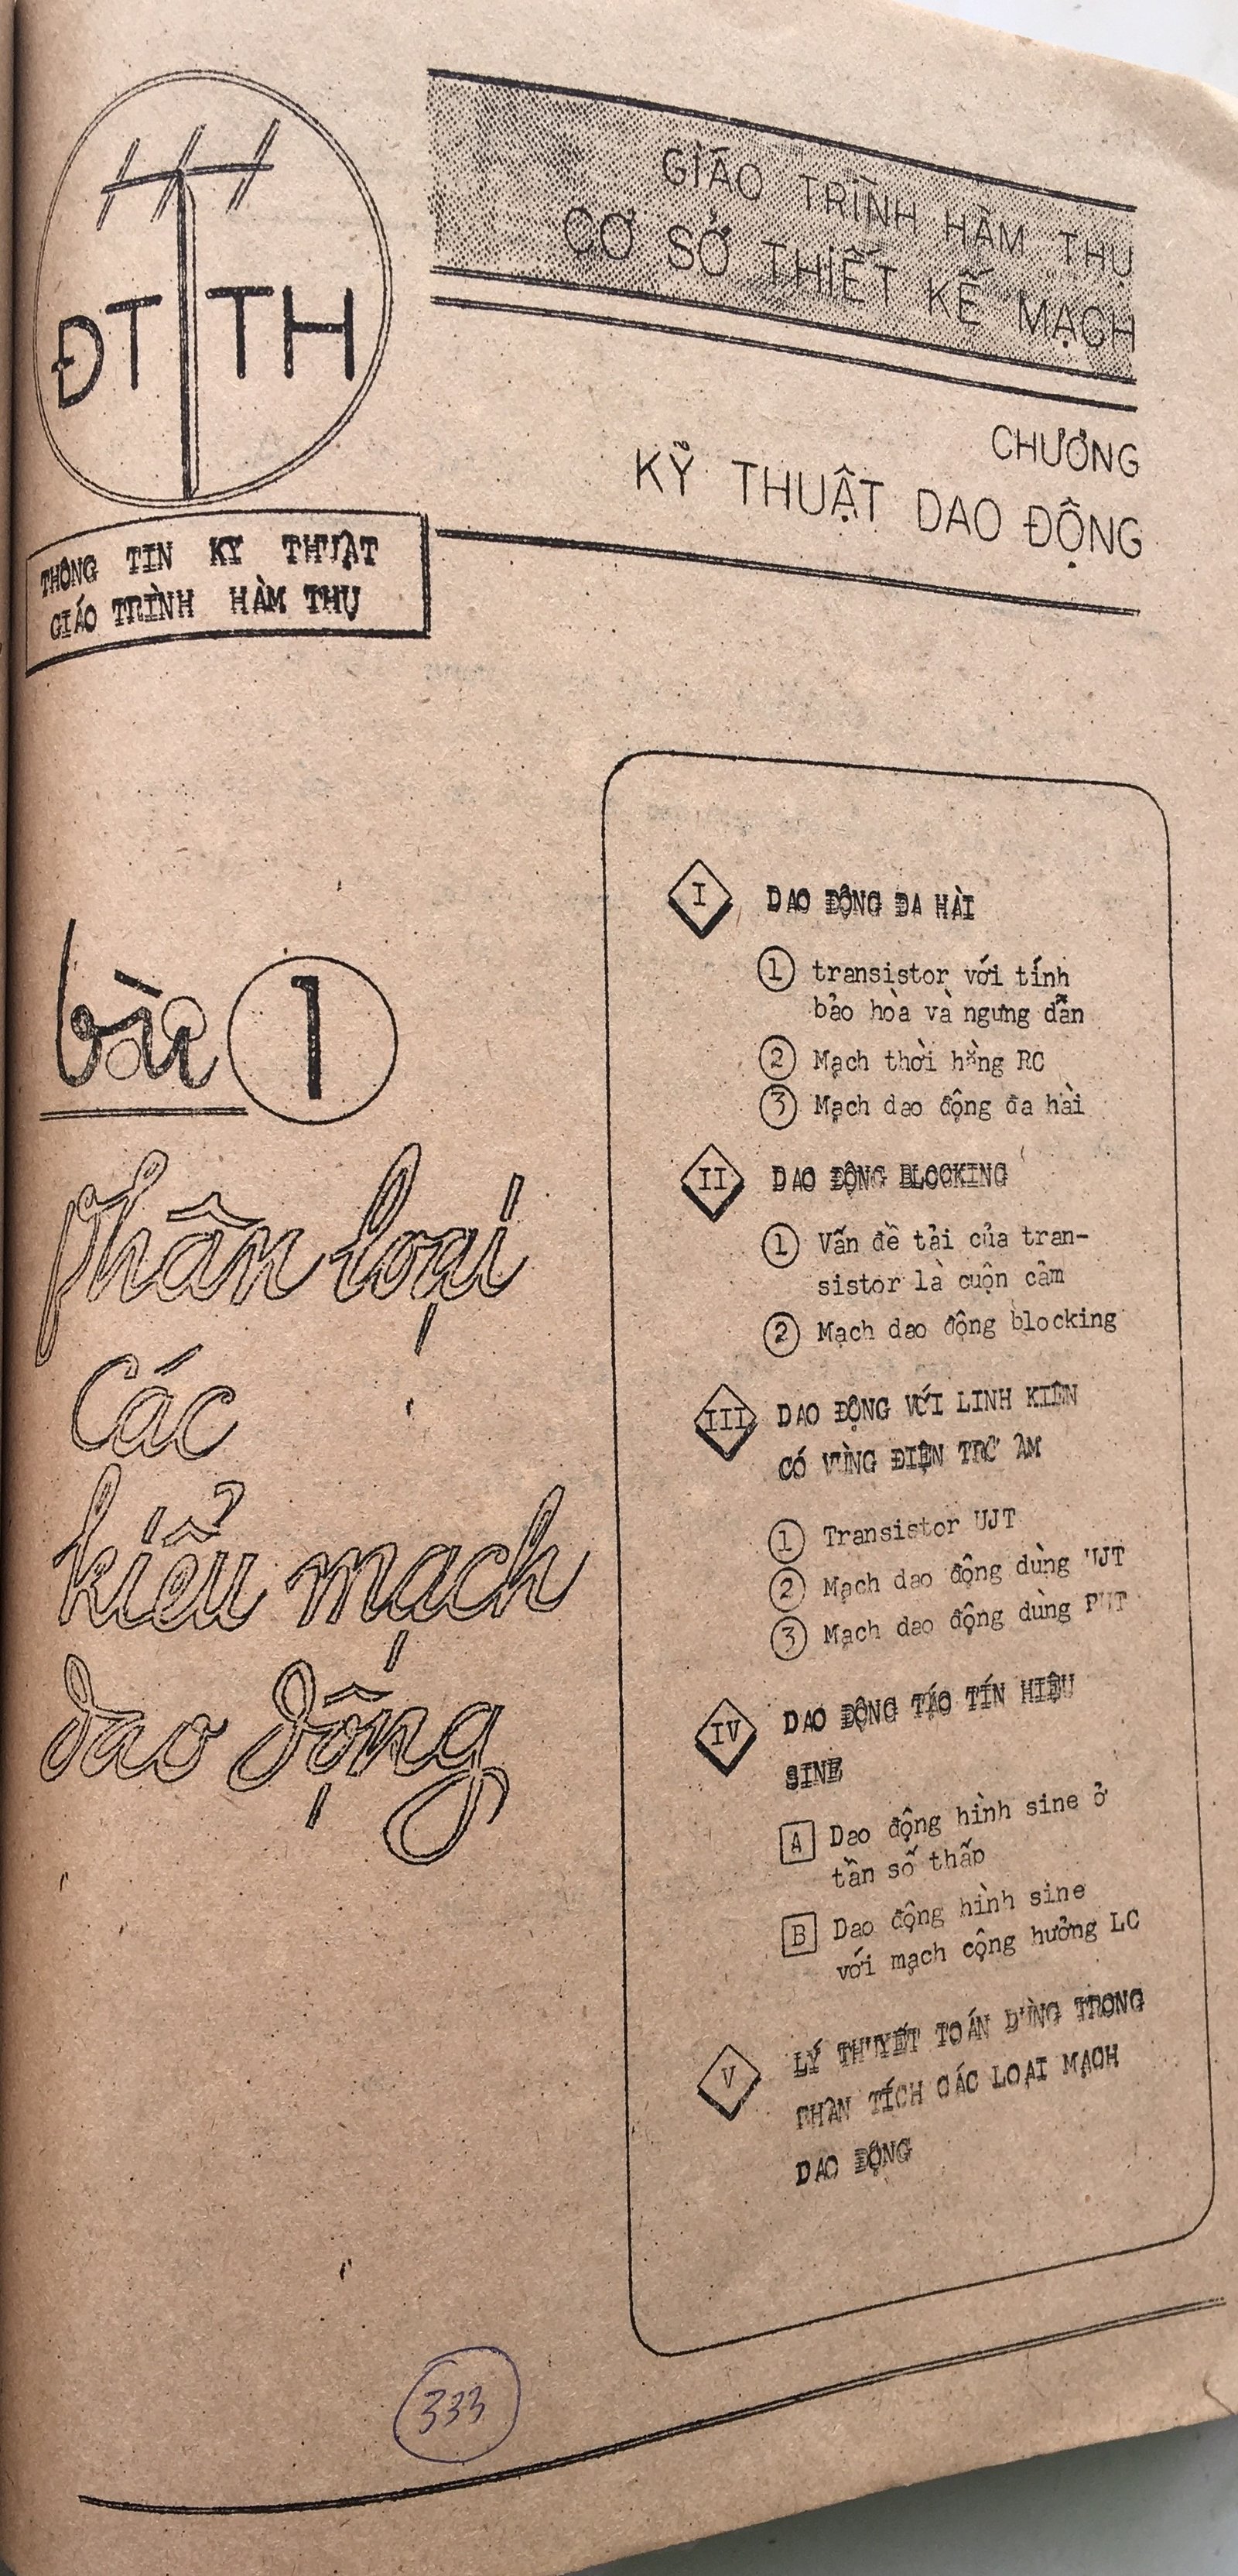 ĐT TH
THÔNG TIN KỸ THUẬT
GIÁO TRÌNH HÀM THỤ
GIÁO TRÌNH HÀM THỤ
CƠ SỞ THIẾT KẾ MẠCH
CHƯƠNG
KỸ THUẬT DAO ĐỘNG
bài 1
phân loại
các
kiểu mạch
dao động
I DAO ĐỘNG ĐA HÀI
1 transistor với tính
bảo hòa và ngưng dẫn
2 Mạch thời hằng RC
3 Mạch dao động đa hài
II DAO ĐỘNG BLOCKING
1 Vấn đề tải của tran-
sistor là cuộn cảm
2 Mạch dao động blocking
III DAO ĐỘNG VỚI LINH KIỆN
CÓ VÙNG ĐIỆN TRỞ ÂM
1 Transistor UJT
2 Mạch dao động dùng UJT
3 Mạch dao động dùng PUT
IV DAO ĐỘNG TÁO TÍN HIỆU
SINE
A Dao động hình sine ở
tần số thấp
B Dao động hình sine
với mạch cộng hưởng LC
V LÝ THUYẾT TOÁN DÙNG TRONG
PHÂN TÍCH CÁC LOẠI MẠCH
DAO ĐỘNG
333